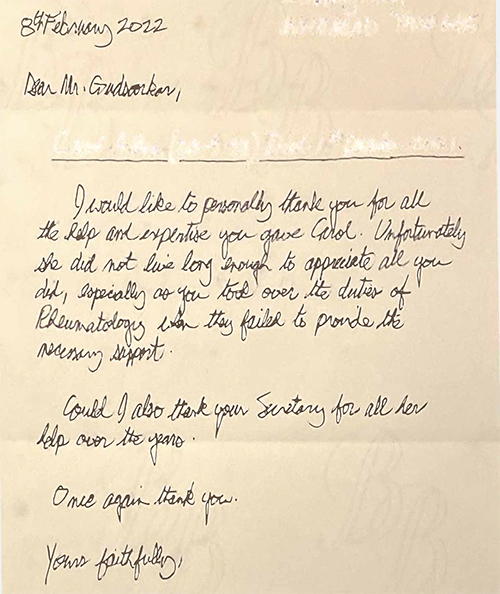 8th February 2022
Dear Mr.
I would like to personally thank you for all
the help and expertise you gave Carol. Unfortunately
she did not live long enough to appreciate all you
did, especially as you took over the duties of
Rheumatology when they failed to provide the
necessary support.
Could I also thank your Secretary for all her
help over the years.
Once again thank you.
Yours faithfully,